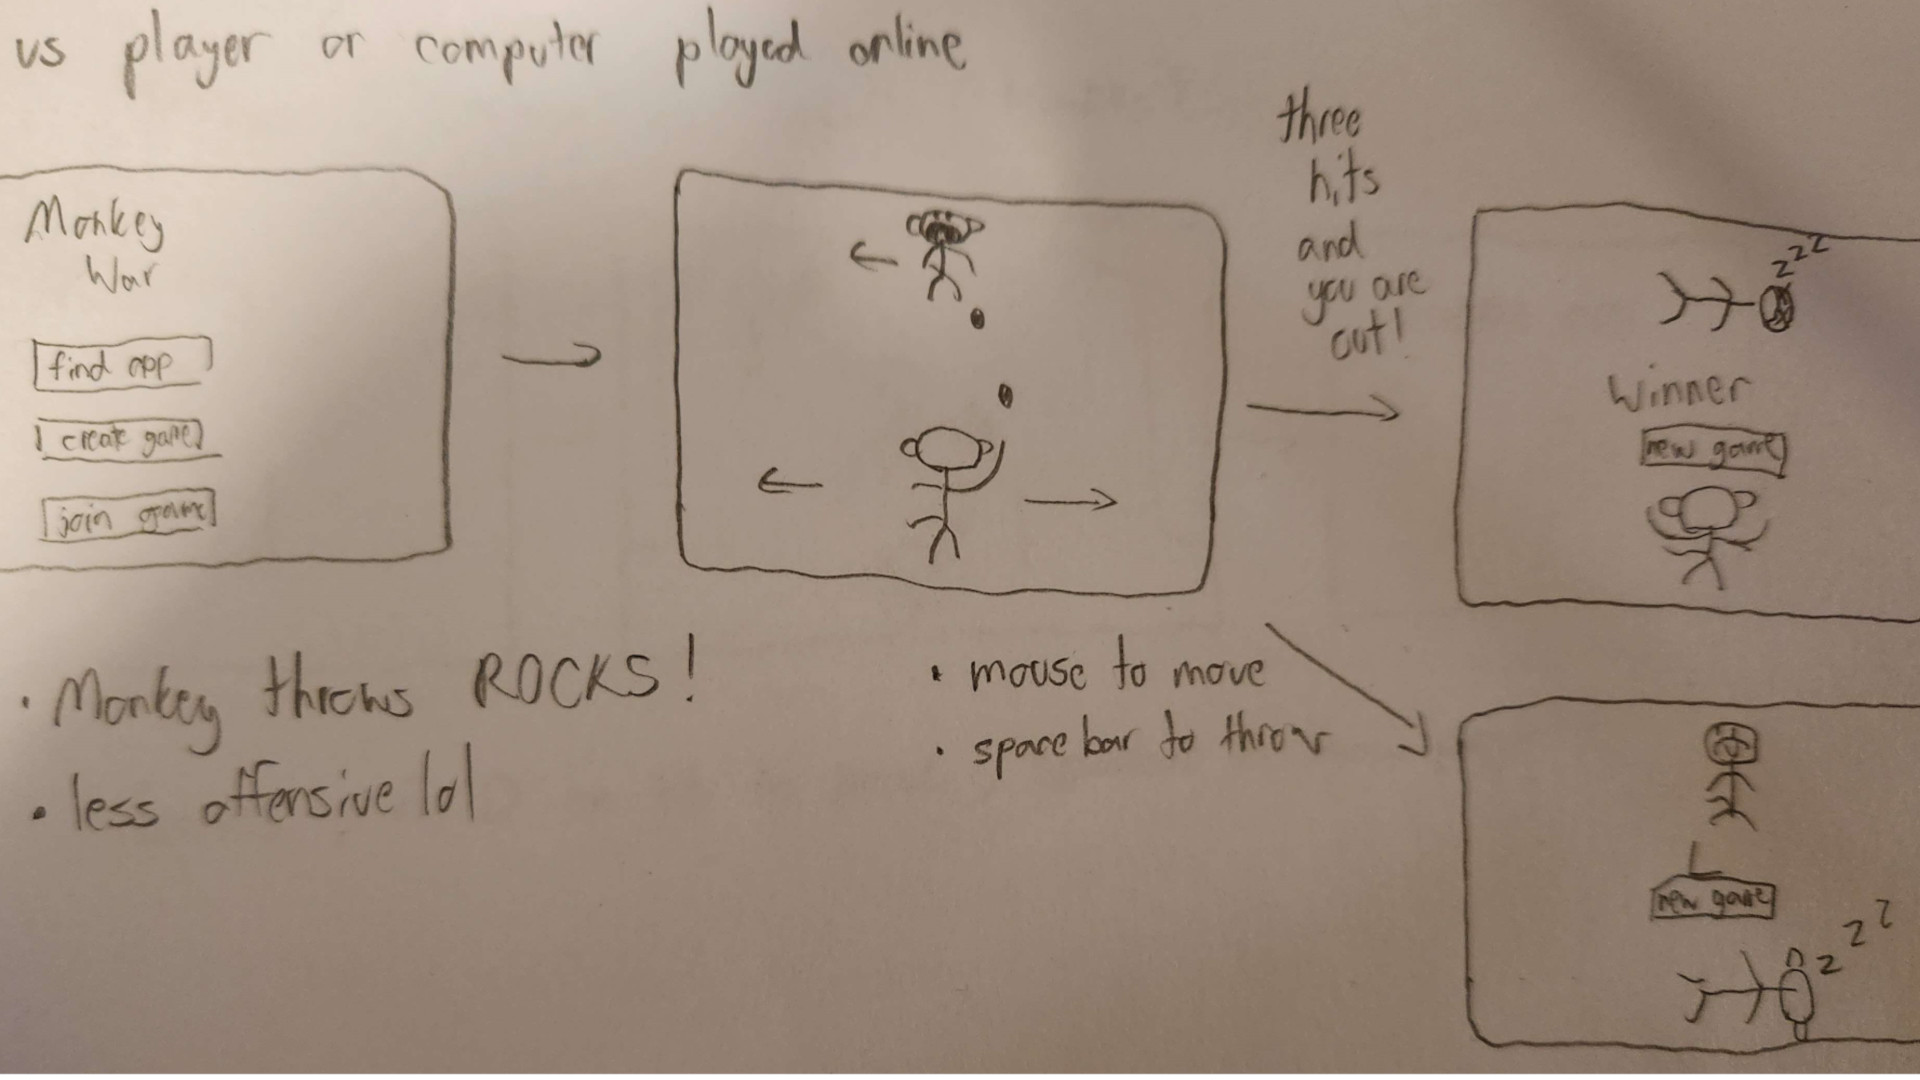 vs player or computer played online
Monkey
War
find opp
create game
join game
three
hits
and
you are
out!
zzz
Winner
new game
• Monkey throws ROCKS!
• less offensive lol
• mouse to move
• space bar to throw
L
new game
zzz